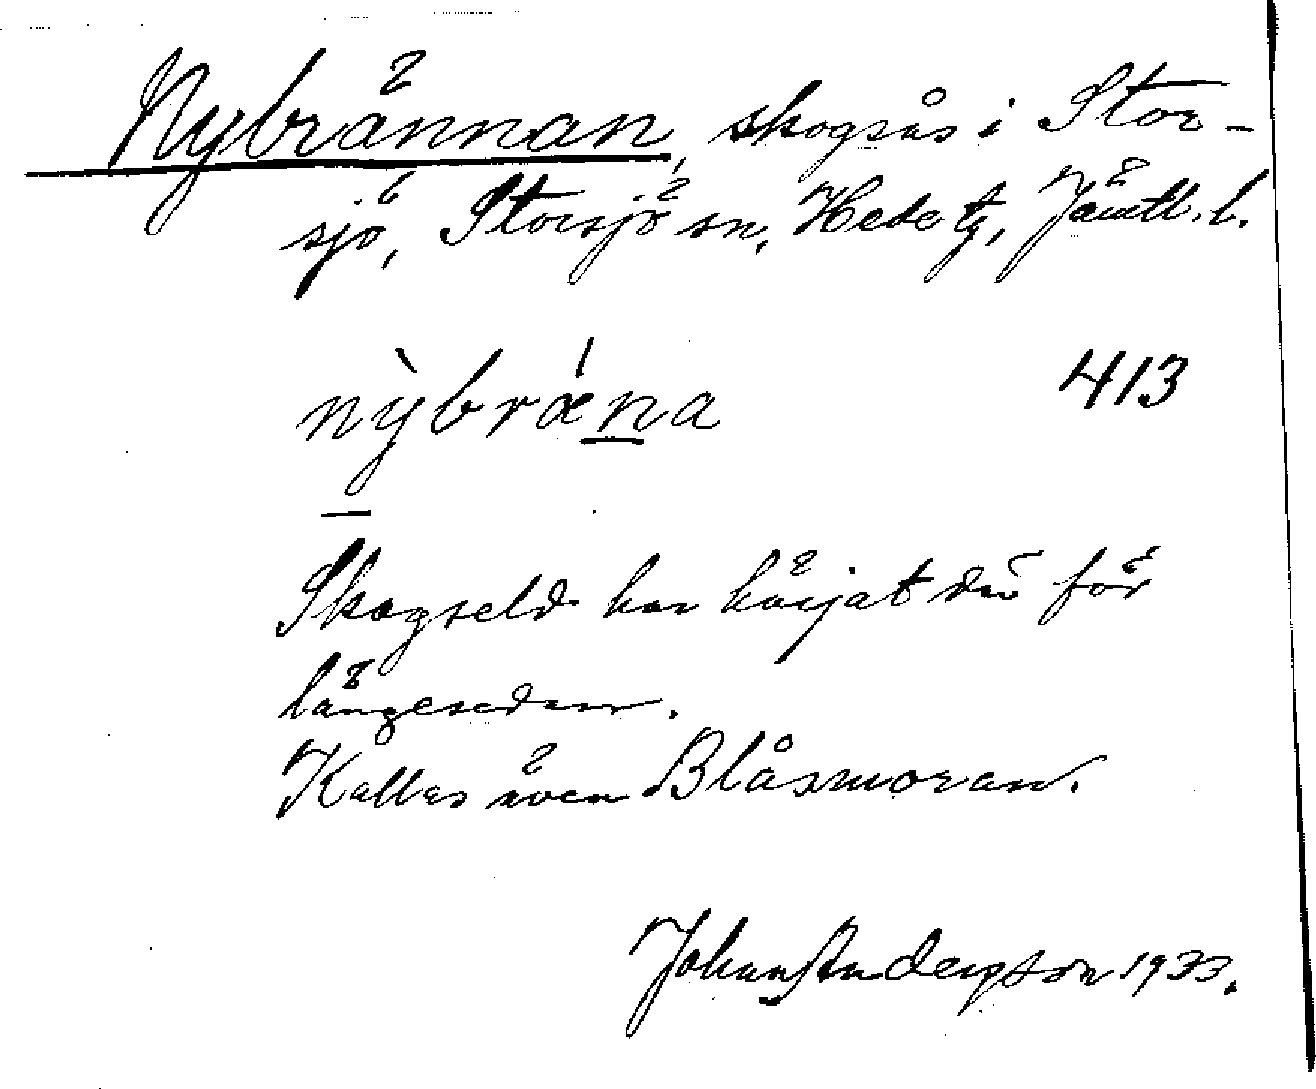 Nybrännan, skogsås i Stor-
sjö, Storsjö sn, Hede tg, Jämtl. l.
nỳbrǽna 413
Skogseld har härjat där för
längesedan.
Kallas även Blåsmoran.
Johan Andersson 1933.